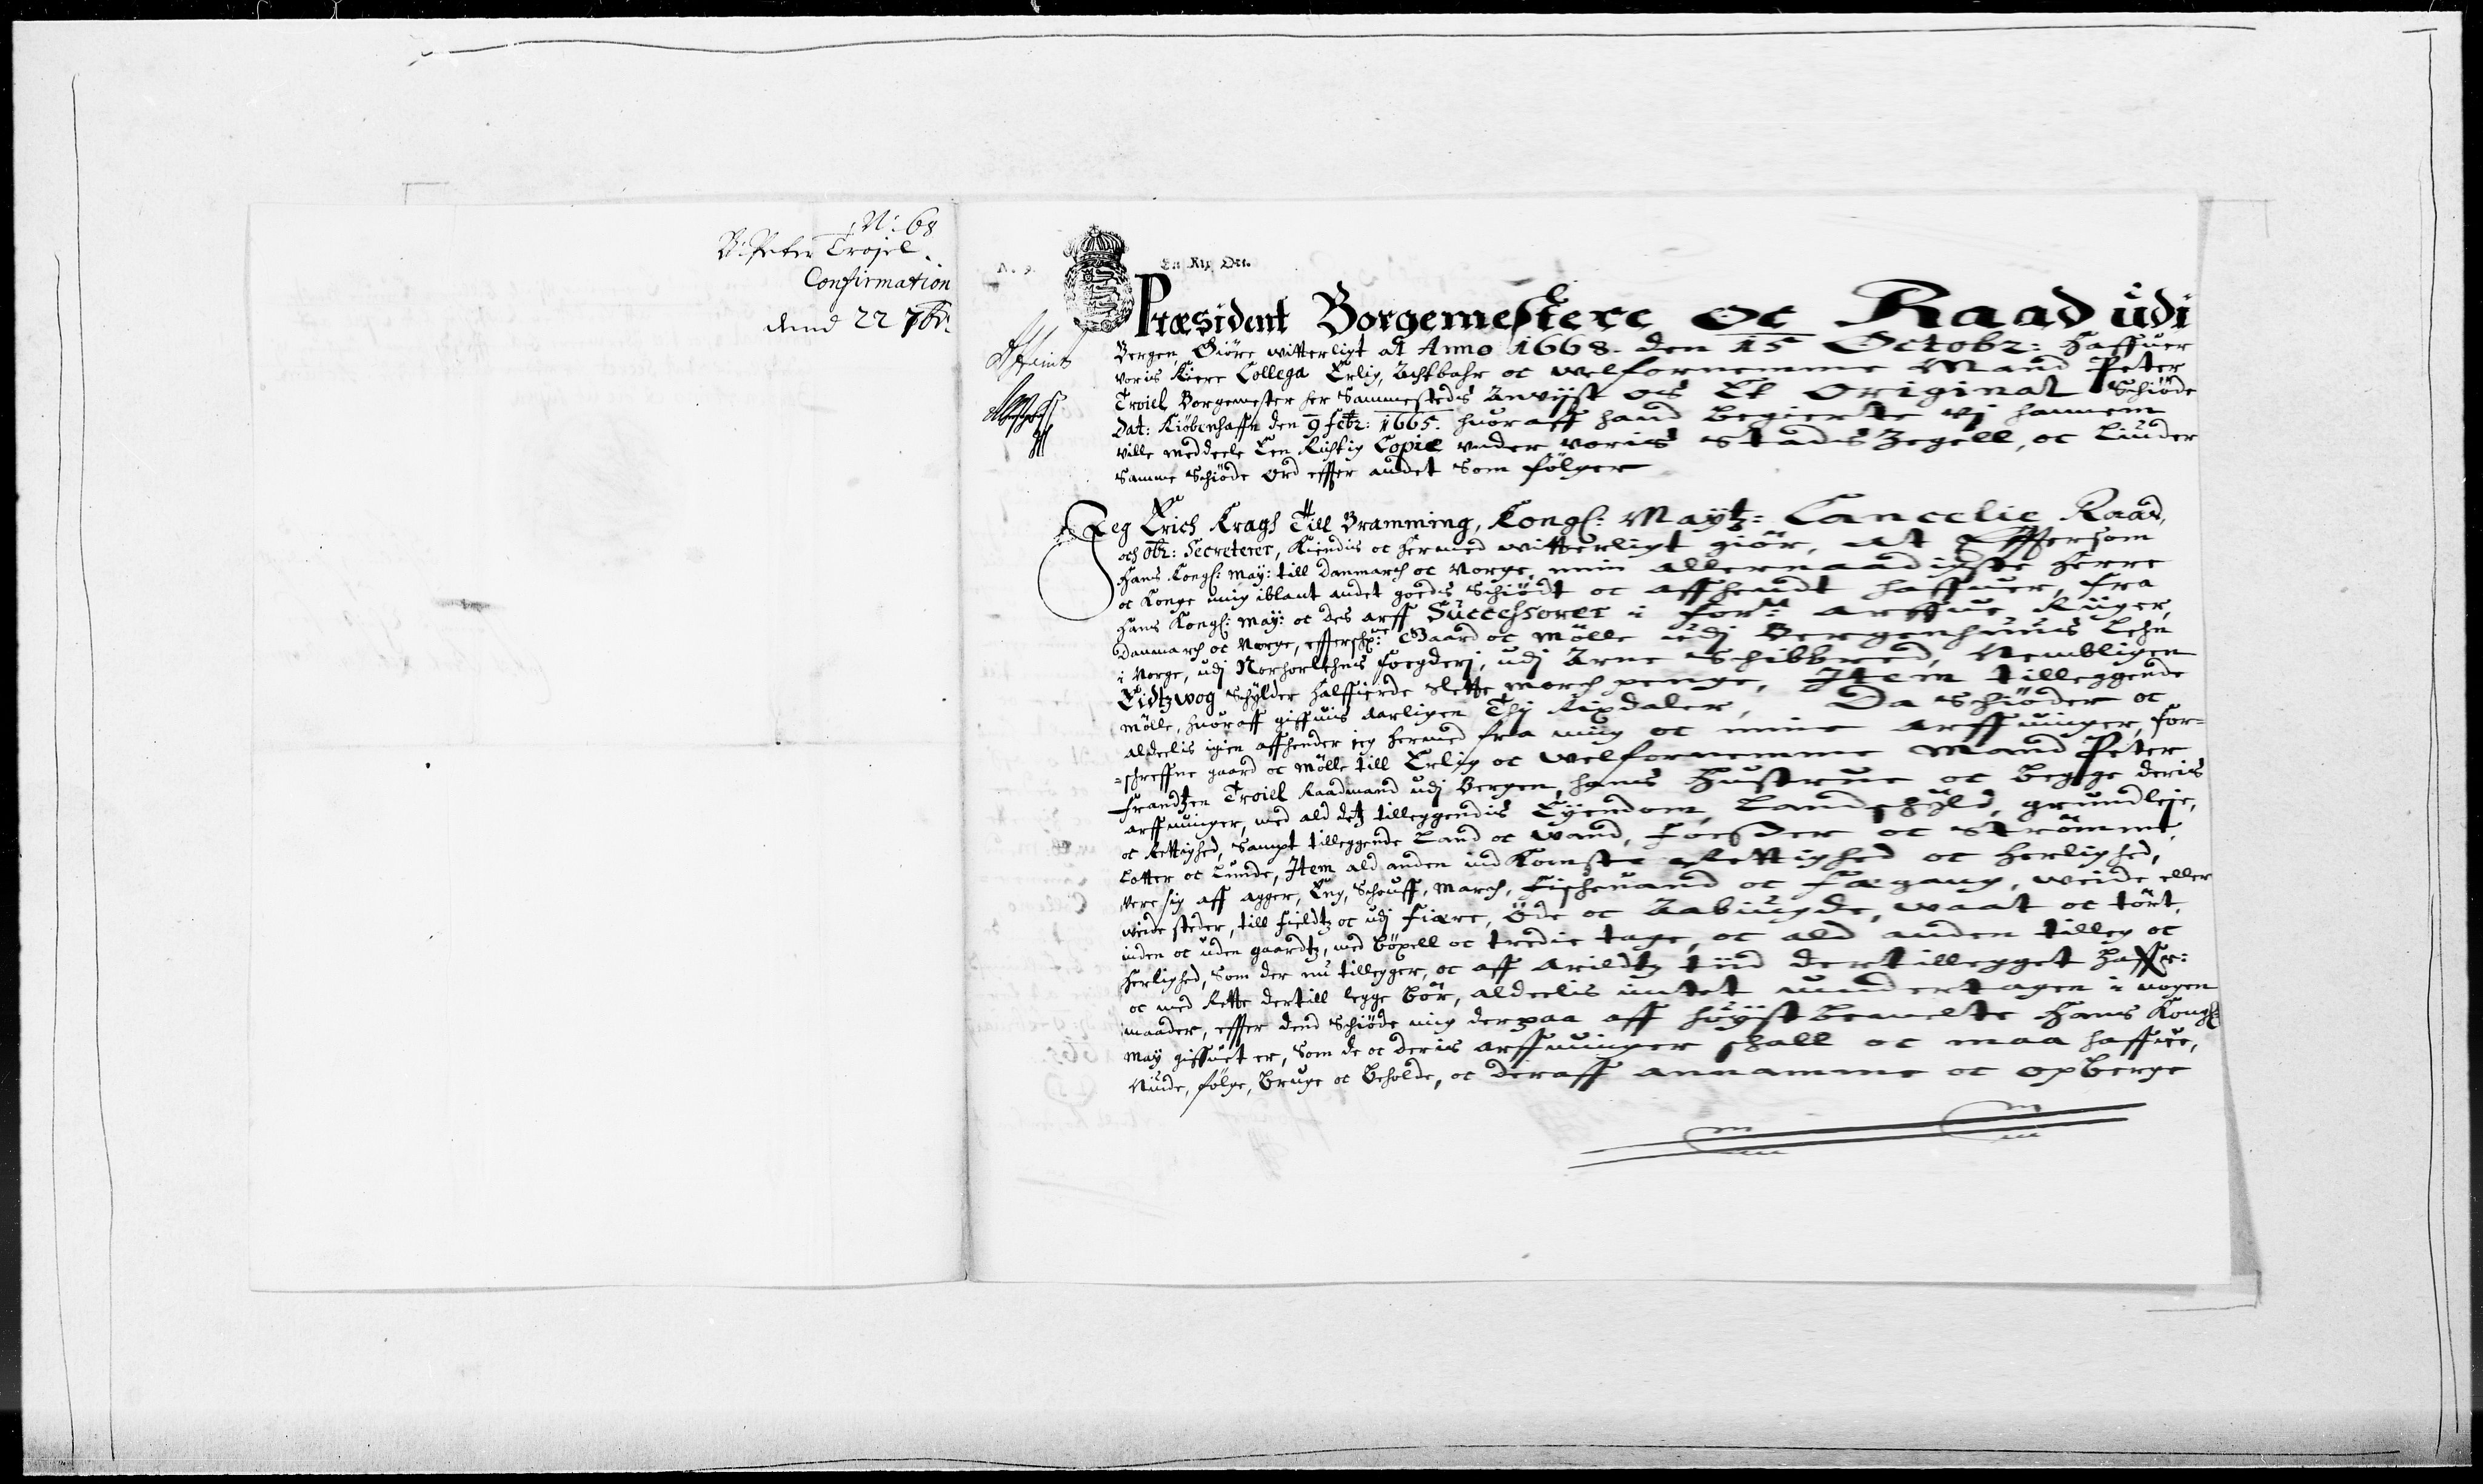 N: 68
B: Peter Trojel.
Confirmation
dend 22 7br:
En Rix Ort.
Præsident Borgemestere oc Raad udi
Bergen, Giöre witterligt at Anno 1668. den 15 Octobr: Haffuer
voris Kiere Collega Erlig, Achtbahr oc welfornemme Mand Peter
Troiel Borgemester her Sammesteds Anvijst os Et Original Schiöde
Dat: Kiöbenhaffn den 9 febr: 1665. huoraff hand begierte vj hannem
ville meddeele Een Richtig Copie under voris Stads Zegell, oc liuder
Samme Schiöde Ord effter andet Som fölger
Jeg Erich Kragh Till Bramming, Kongl: Maytz: Cancelie Raad,
och Obr: Secreterer, Kiendis oc hermed witterligt giör, At Effttersom
Hans Kongl: May: till Danmarch oc Norge, min allernaadigste Herre
oc Konge mig iblant andet goeds Schiödt oc affhendt haffuer, fra
Hans Kongl: May: oc des arff Successorer i for: arffue Riiger,
Danmarch oc Norge, effterschr: Gaard oc Mölle udj Bergenhuus Lehn
i Norge, udj Norhorlehns foegderj, udj Arne Schibbred, Nembligen
Eidtzwog Schylder halffierde Slette march penge, Item tilleggende
Mölle, huoraff giffuis aarligen Thj Rixdaler, Da Schiöder oc
aldeelis igien affhender jeg hermed fra mig oc mine arffuinger, for=
=schreffne gaard oc Mölle till Erlig oc welfornemme Mand Peter
Frandtzen Troiel Raadmand udj Bergen, hans Hustrue oc begge deris
arffuinger, med ald detz tilleggendis Eyendom, Landschyld, grundleje,
oc Rettighed, Sampt tilleggende Land oc Wand, Foesser oc Strömme,
Lotter oc Lunde, Item ald anden ind Komste Rettighed oc herlighed,
være sig aff agger, Eng, Schouff, March, Fischevand oc Fægang, weide eller
weide steder, till Fieldtz oc udj Fiære, öde oc Aabiugde, waat oc tört,
inden oc uden gaardtz, med böxell oc tredie tage, oc ald anden tilleg oc
herlighed, Som der nu tillegger, oc aff Arildtz tiid dertillegget Haffr:
oc med Rette dertill legge bör, aldeelis intet undertagen i nogen
maader, effter dend Schiöde mig derpaa aff höyistbemelte Hans Kongl:
May giffuet er, Som de oc deris arffuinger schall oc maa haffue,
Niude, fölge, bruge oc beholde, oc deraff annamme oc opberge